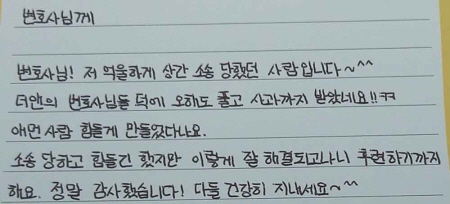 변호사님께
변호사님! 저 억울하게 상간 소송 당했던 사람입니다~^^
더앤의 변호사님들 덕에 오해도 풀고 사과까지 받았네요!!ㅋ
애먼 사람 힘들게 만들었다나요.
소송 당하고 힘들긴 했지만 이렇게 잘 해결되고나니 후련하기까지
해요. 정말 감사했습니다! 다들 건강히 지내세요~^^